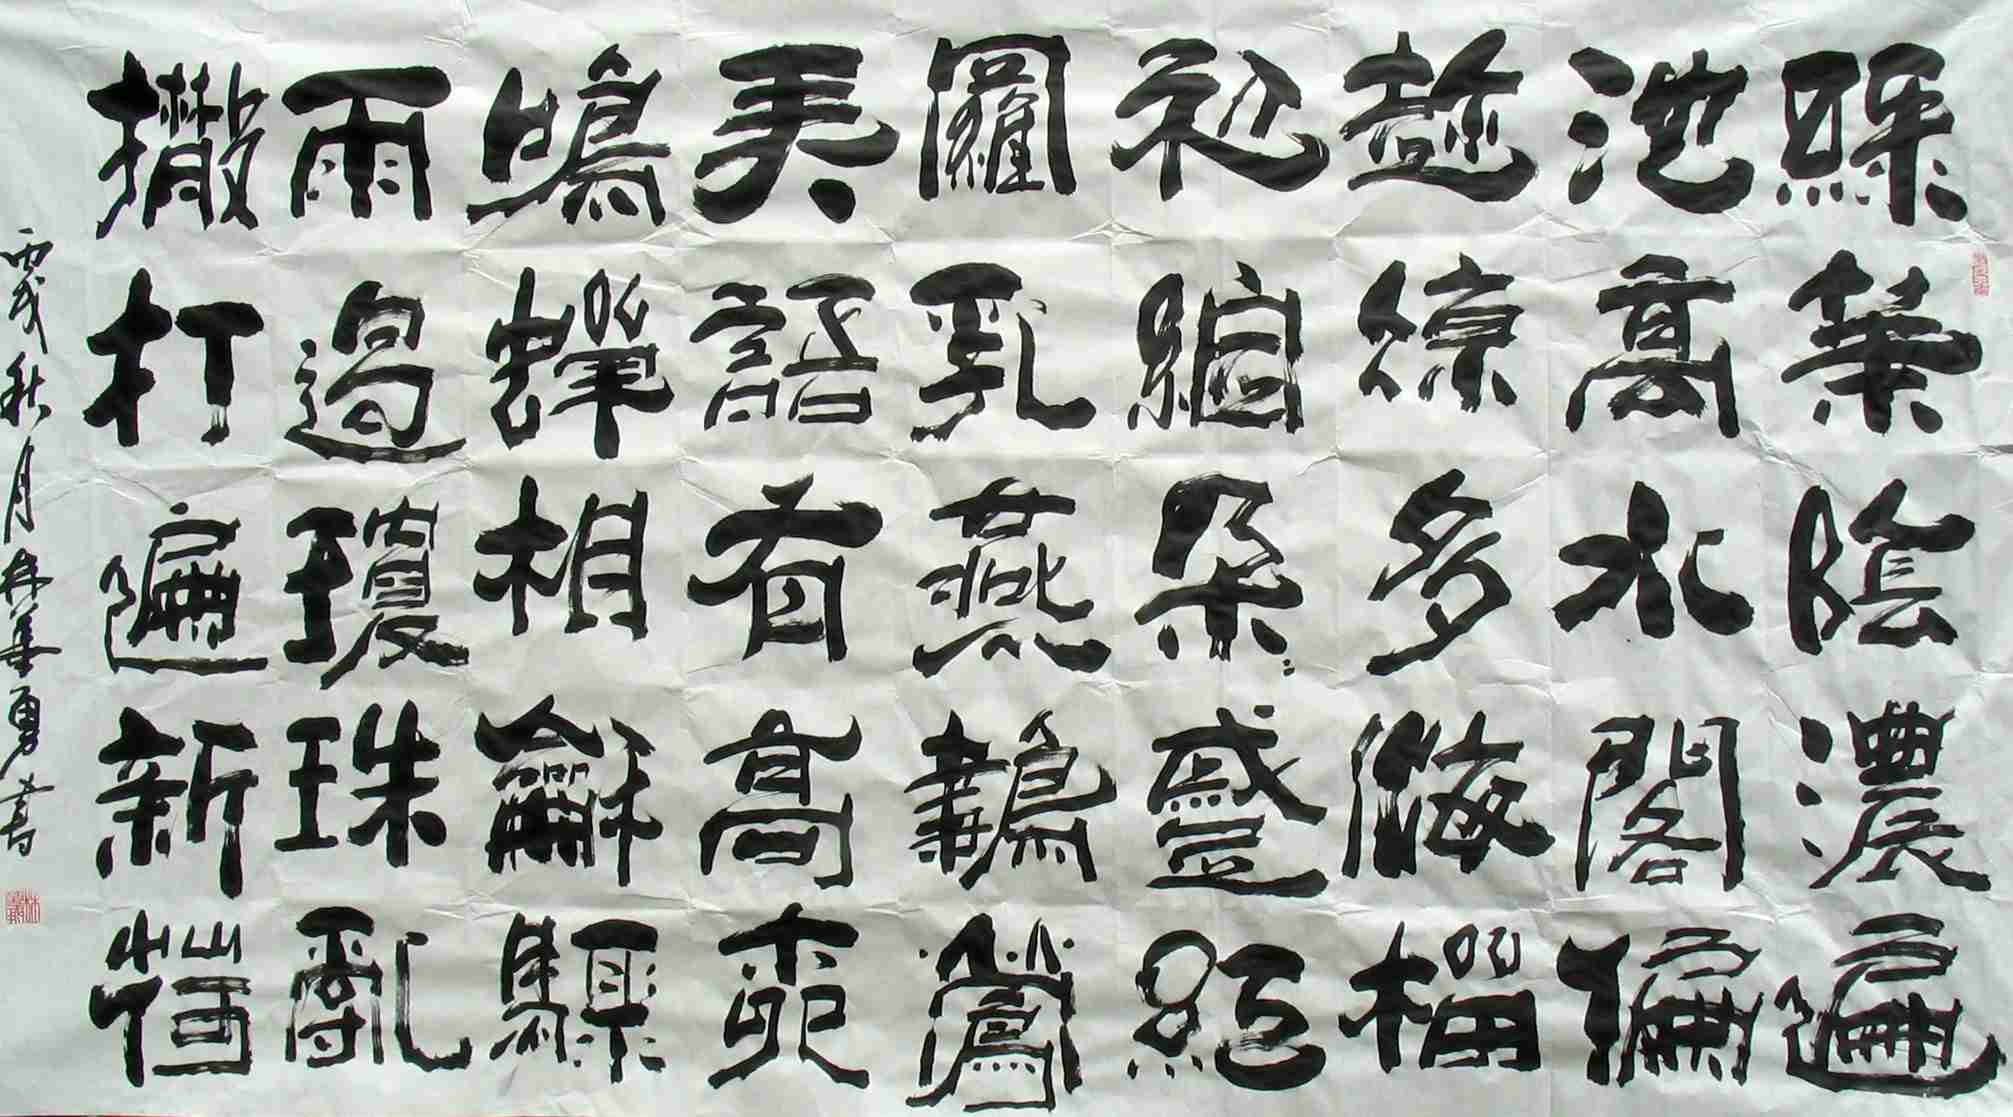 綠葉陰濃遍
池亭水閣偏
趁涼多海榴
初綻朵〻蹙紅
羅乳燕雛鶯
弄語有高柳
鳴蟬相龢驟
雨過瓊珠亂
撒打遍新荷
丙戌秋月林勇書